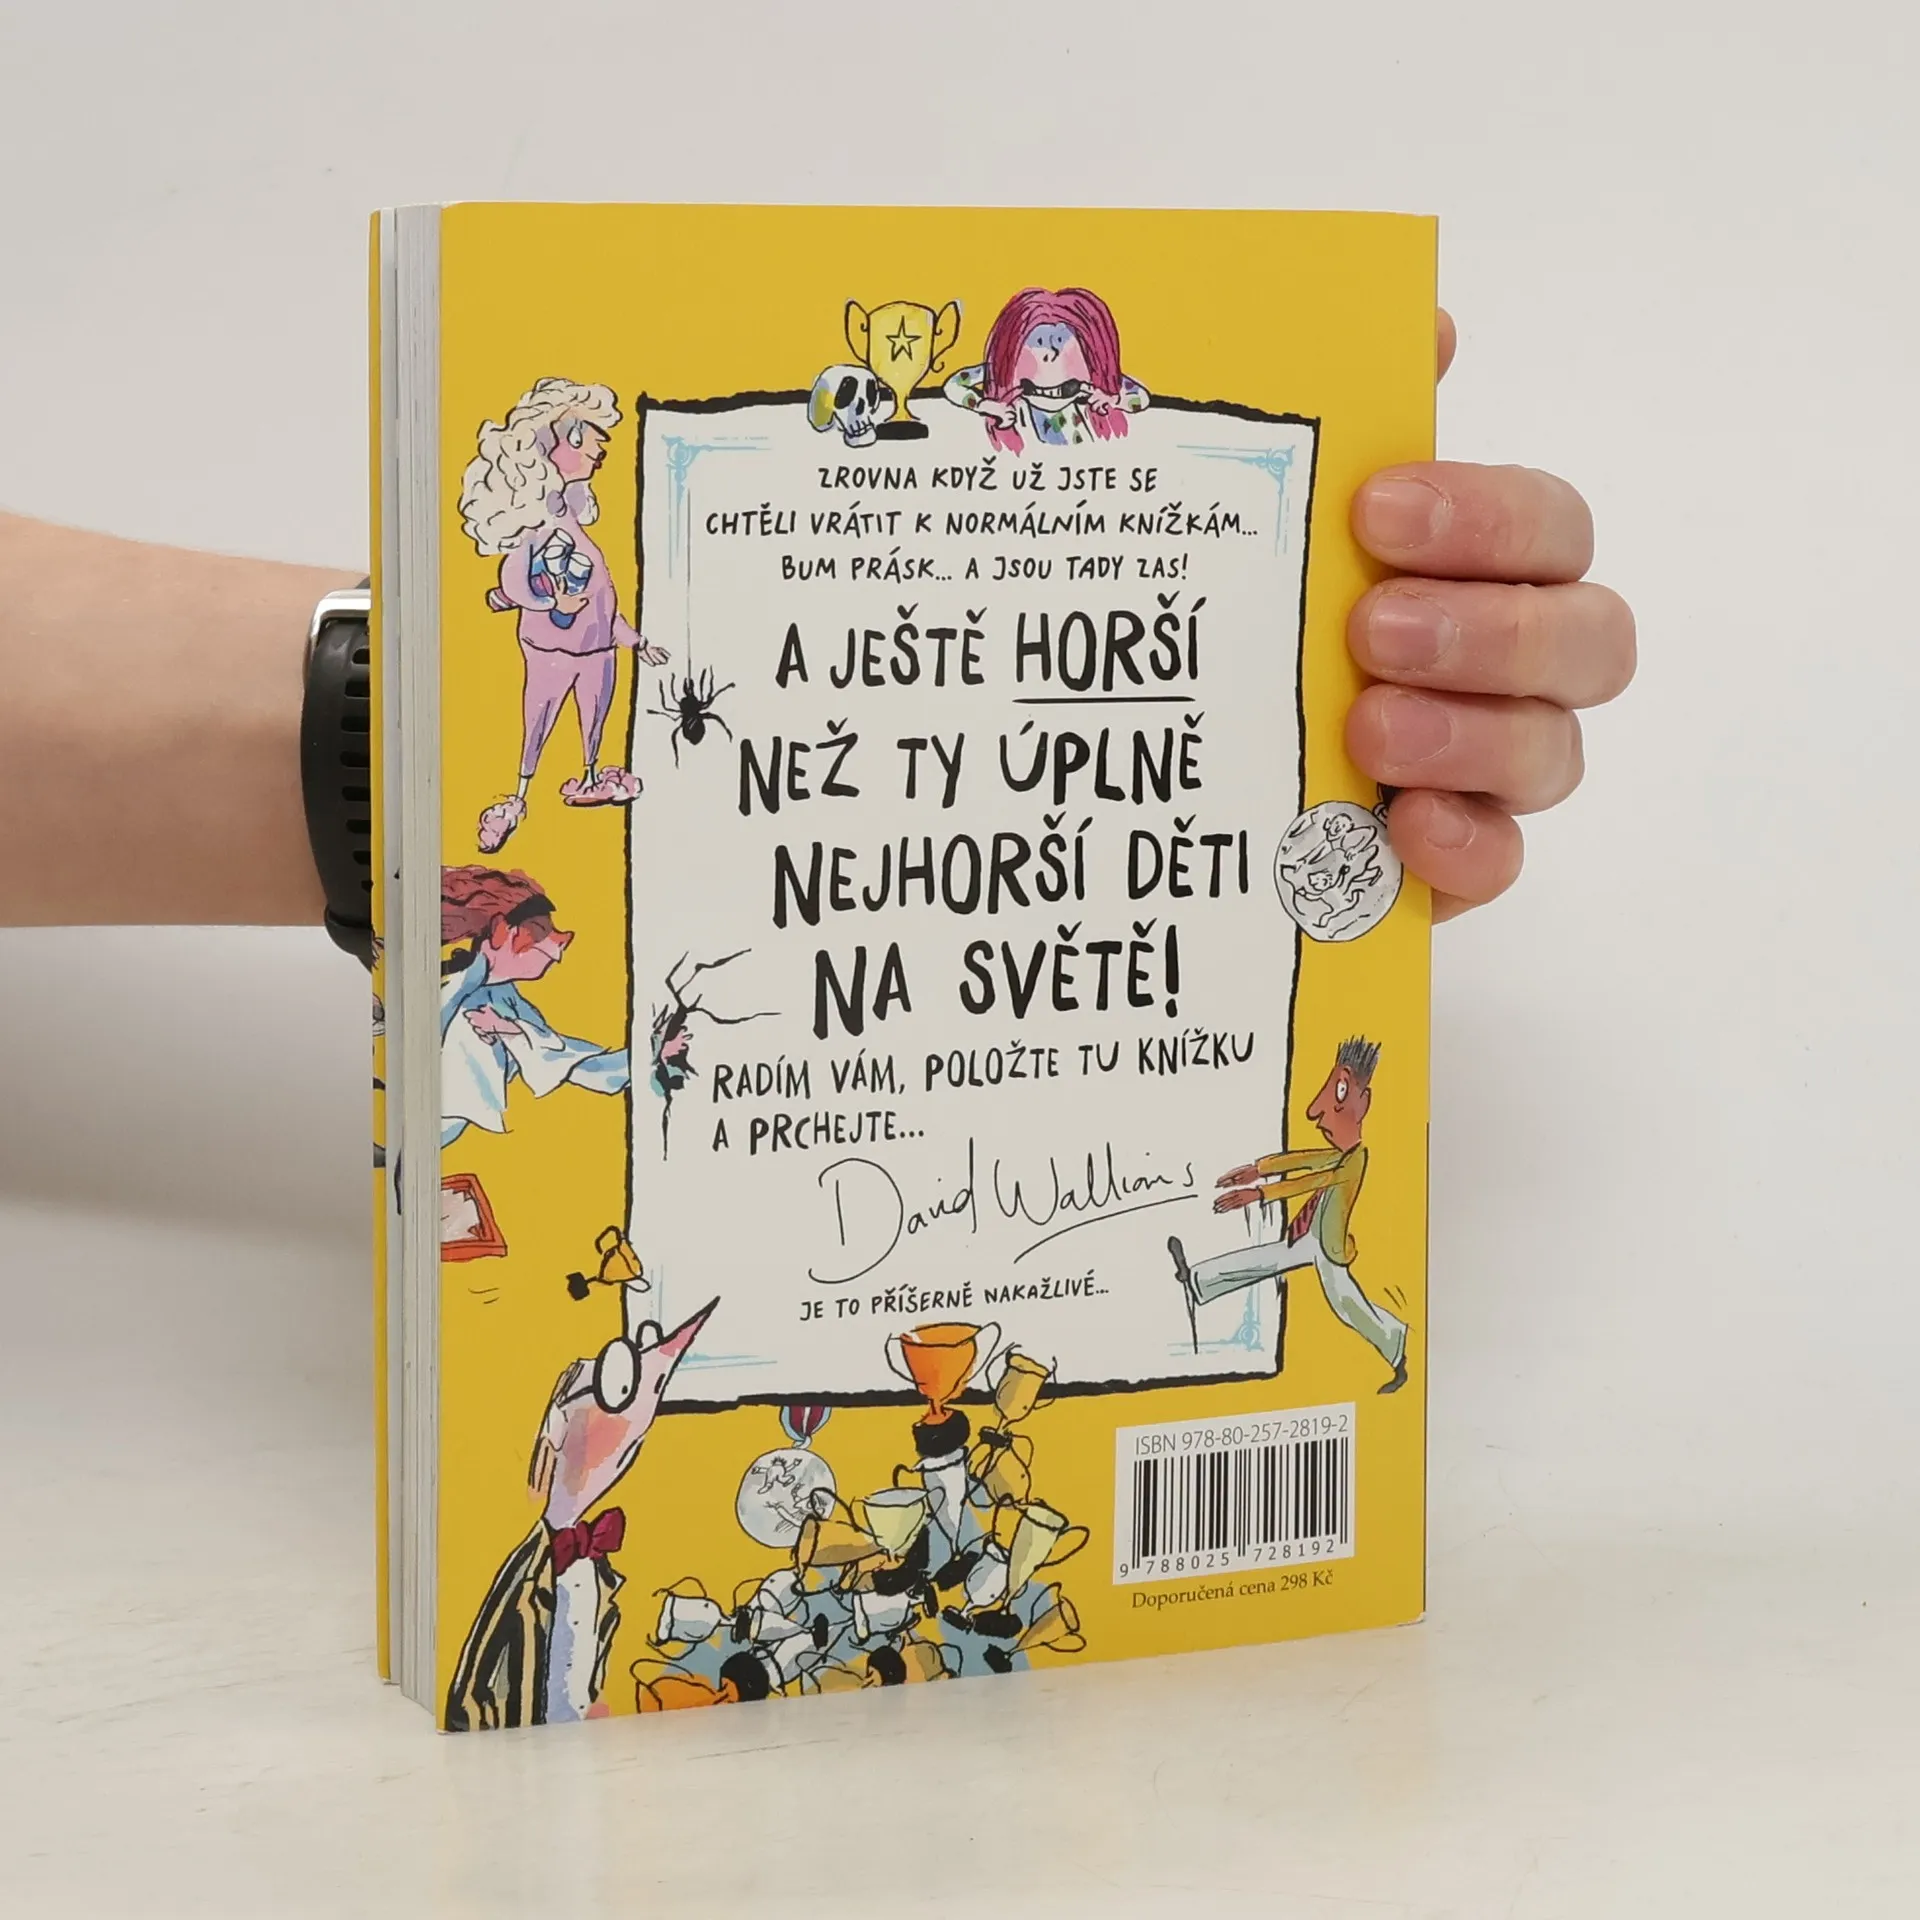 ZROVNA KDYŽ UŽ JSTE SE
CHTĚLI VRÁTIT K NORMÁLNÍM KNÍŽKÁM...
BUM PRÁSK... A JSOU TADY ZAS!
A JEŠTĚ HORŠÍ
NEŽ TY ÚPLNĚ
NEJHORŠÍ DĚTI
NA SVĚTĚ!
RADÍM VÁM, POLOŽTE TU KNÍŽKU
A PRCHEJTE...
David Walliams
JE TO PŘÍŠERNĚ NAKAŽLIVÉ...
ISBN 978-80-257-2819-2
9 788025 728192
Doporučená cena 298 Kč